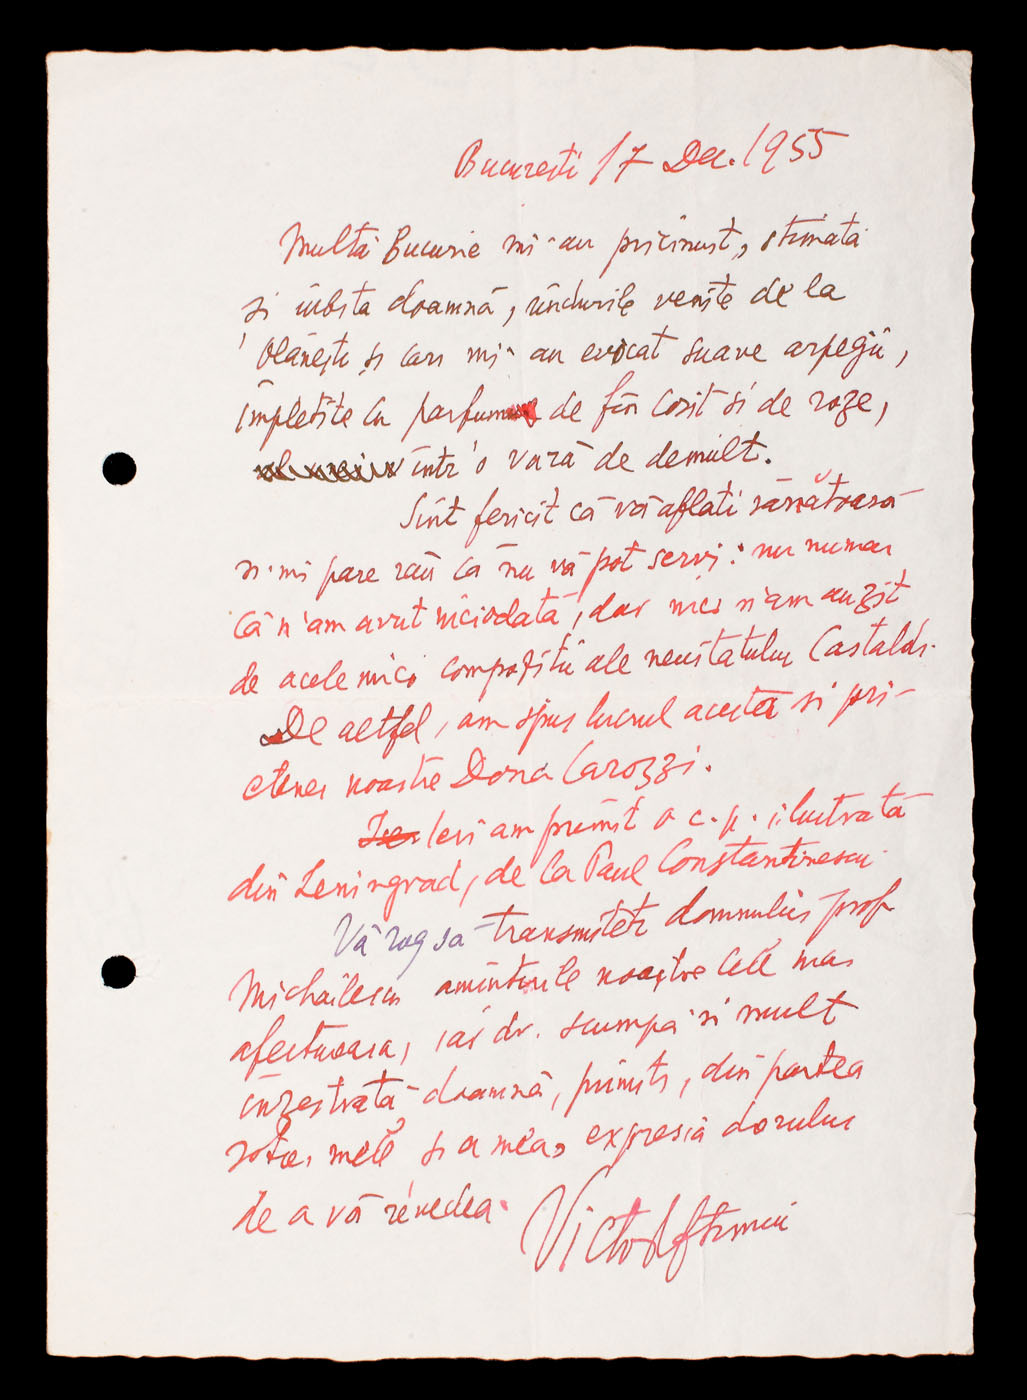 București 17 Dec. 1955
Multă Bucurie mi-au pricinuit, stimată
și iubita doamnă, rîndurile venite de la
Olănești și cari mi-au evocat suave arpegii,
împletite cu parfum de fîn cosit și de roze,
într'o vară de demult.
Sînt fericit că vă aflati sănătoasă
si-mi pare rău că nu vă pot servi: nu numai
că n'am avut niciodată, dar nici n'am auzit
de acele mici compoziții ale neuitatului Castaldi.
De altfel, am spus lucrul acesta si pri-
etenei noastre Dona Carozzi.
Ieri am primit o c. p. ilustrată
din Leningrad, de la Paul Constantinescu.
Vă rog sa transmiteti domnului prof
Michăilescu amintirile noastre cele mai
afectuoase, iar dv. scumpă si mult
înzestrată doamnă, primiti, din partea
soției mele și a mea, expresia dorului
de a vă revedea.
Victor Eftimiu